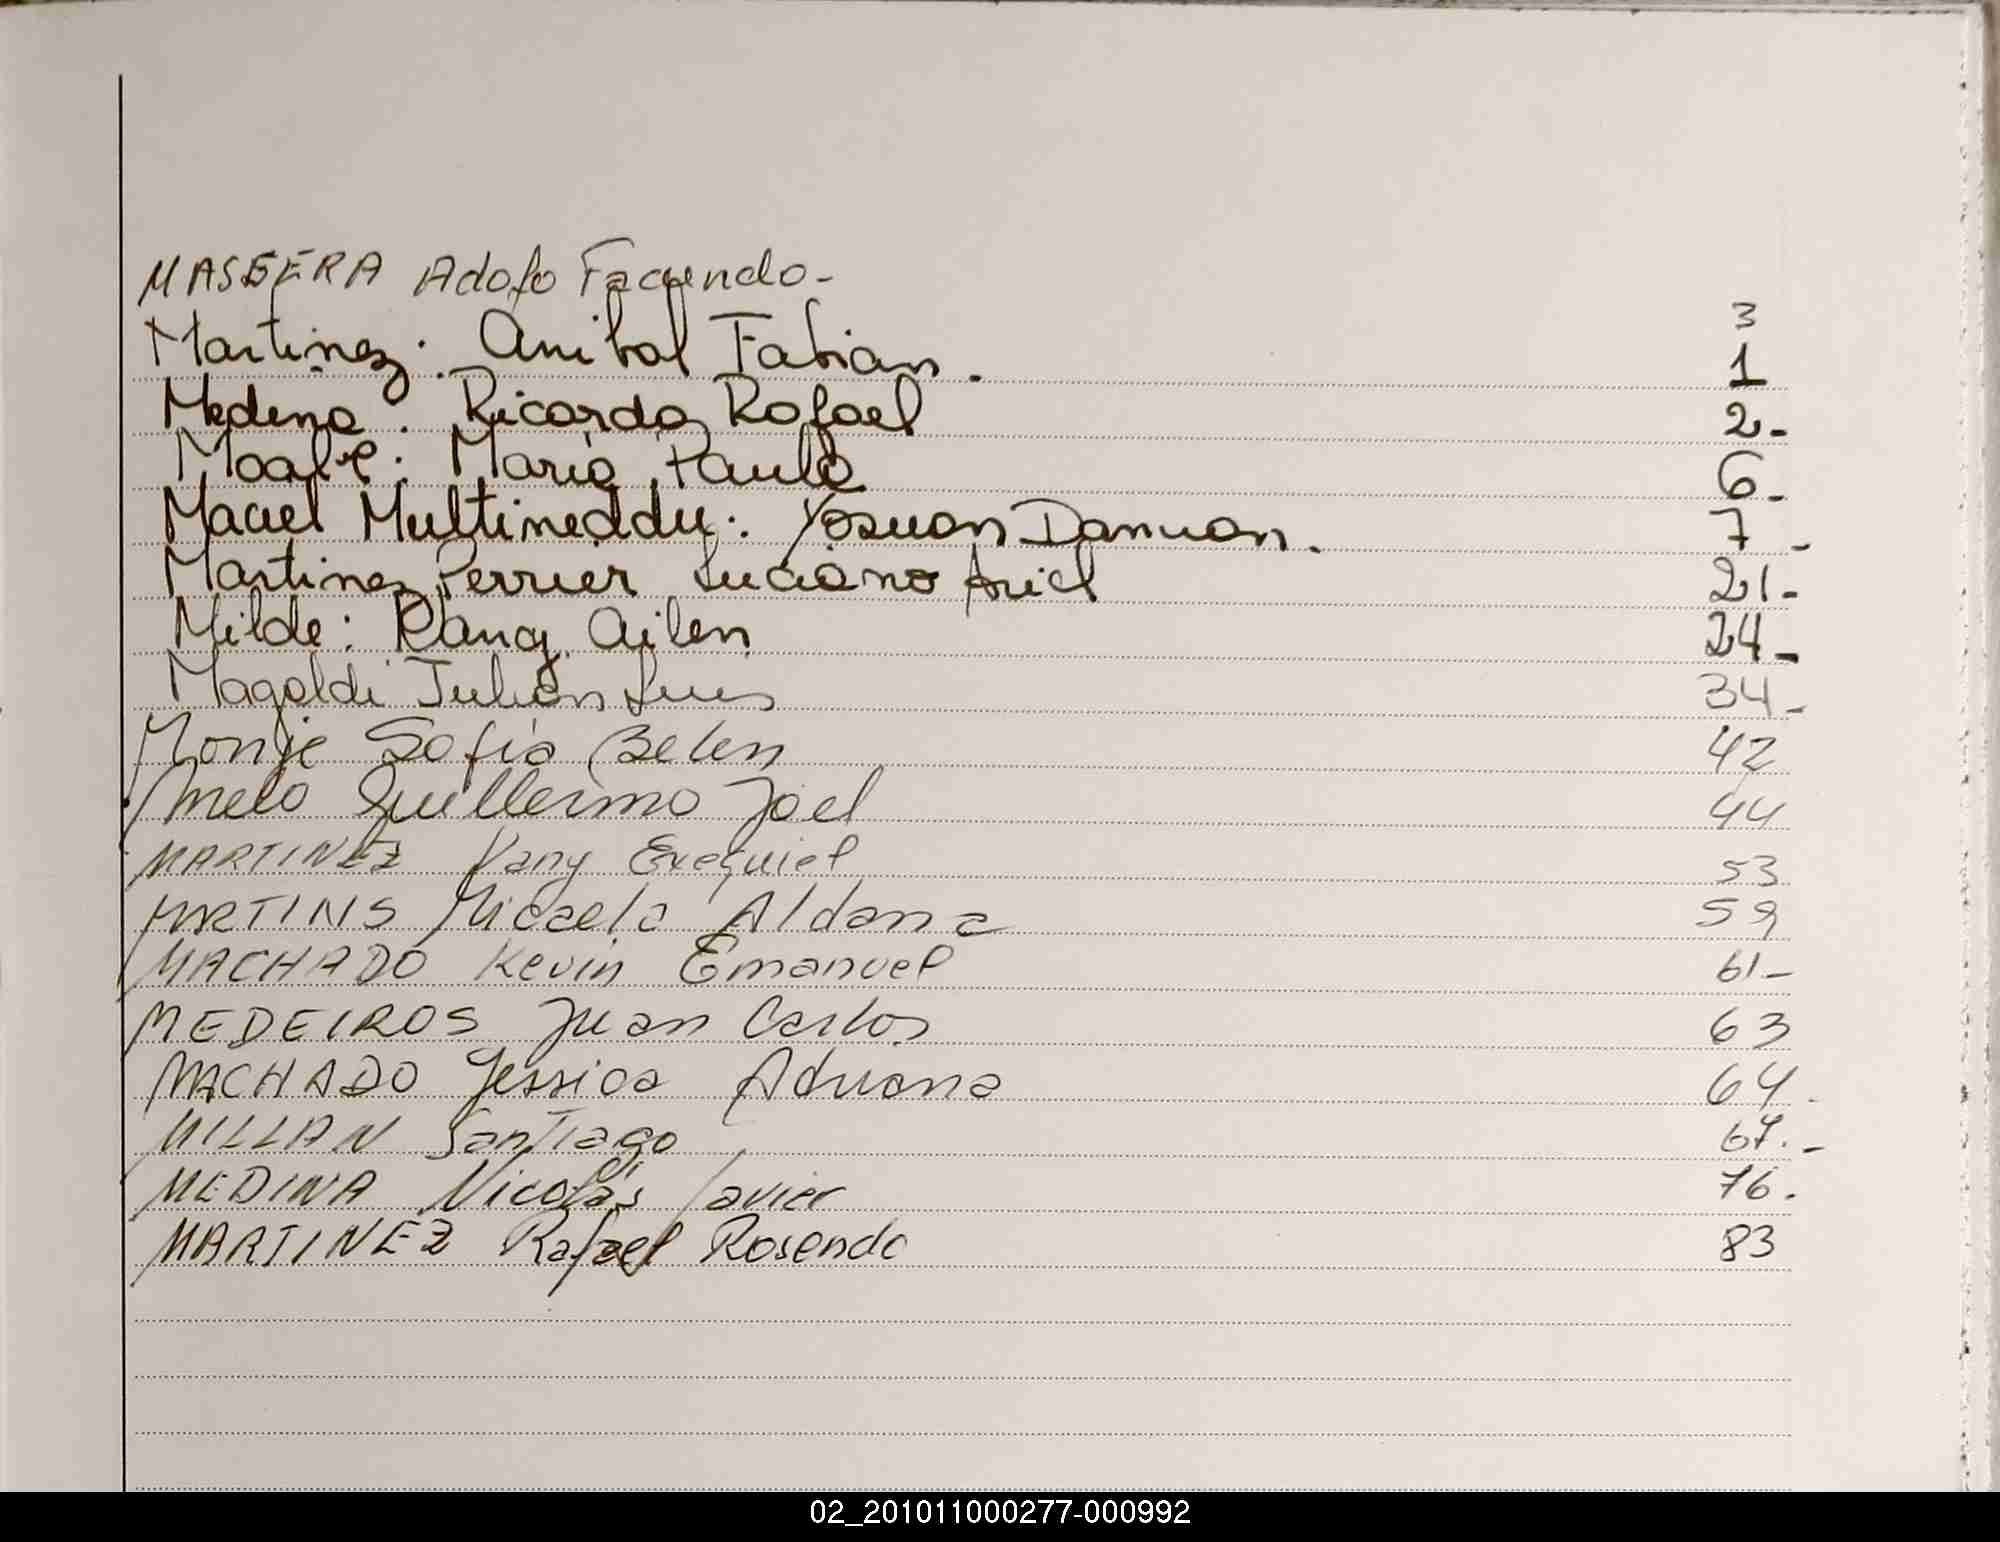 MASSERA Adofo Facundo - 3
Martinez: Anibal Fabian. 1
Medina: Ricardo Rafael 2-
Maria Paula 6-
Maciel Multineddu: Yosuan Damian. 7-
Martinez Perrier Luciano Ariel 21-
Milde: Ailen 24-
Magaldi Julian Luis 34-
Monje Sofia Belen 42
Melo Guillermo Joel 44
MARTINEZ Vany Exequiel 53
MARTINS Micaela Aldana 59
MACHADO Kevin Emanuel 61-
MEDEIROS Juan Carlos 63
MACHADO Jessica Adriana 64.
MILLAN Santiago 67.-
MEDINA Nicolás Javier 76.
MARTINEZ Rafael Rosendo 83
02_201011000277-000992